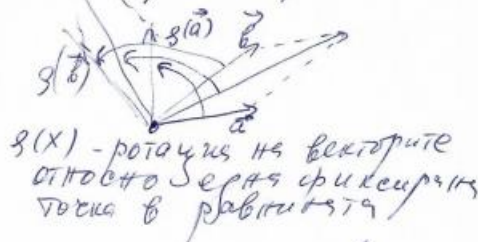 φ(a⃗)
b⃗
φ(b⃗)
a⃗
φ(x) - ротация на векторите
относно една фиксирана
точка в равнината